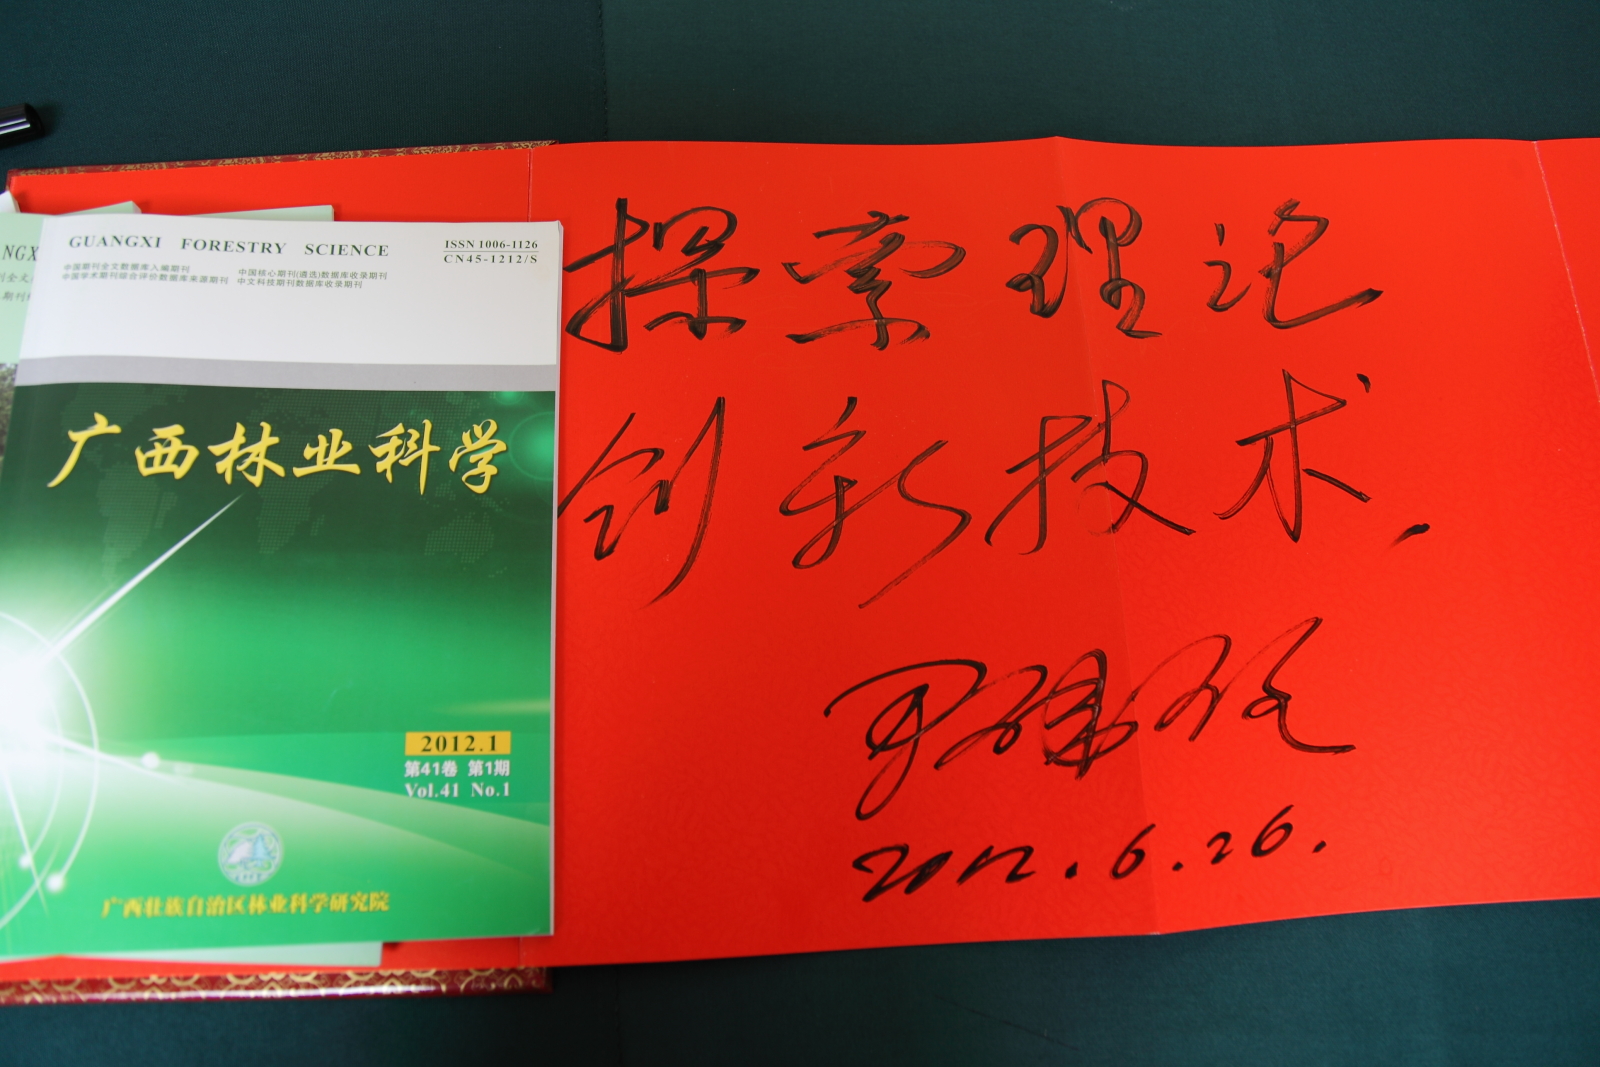 GUANGXI FORESTRY SCIENCE
ISSN 1006-1126
CN45-1212/S
中国期刊全文数据库入编期刊
中国核心期刊(遴选)数据库收录期刊
中国学术期刊综合评价数据库来源期刊
中文科技期刊数据库收录期刊
广西林业科学
2012.1
第41卷 第1期
Vol.41 No.1
广西壮族自治区林业科学研究院
NGX
探索理论
创新技术.
2012.6.26.